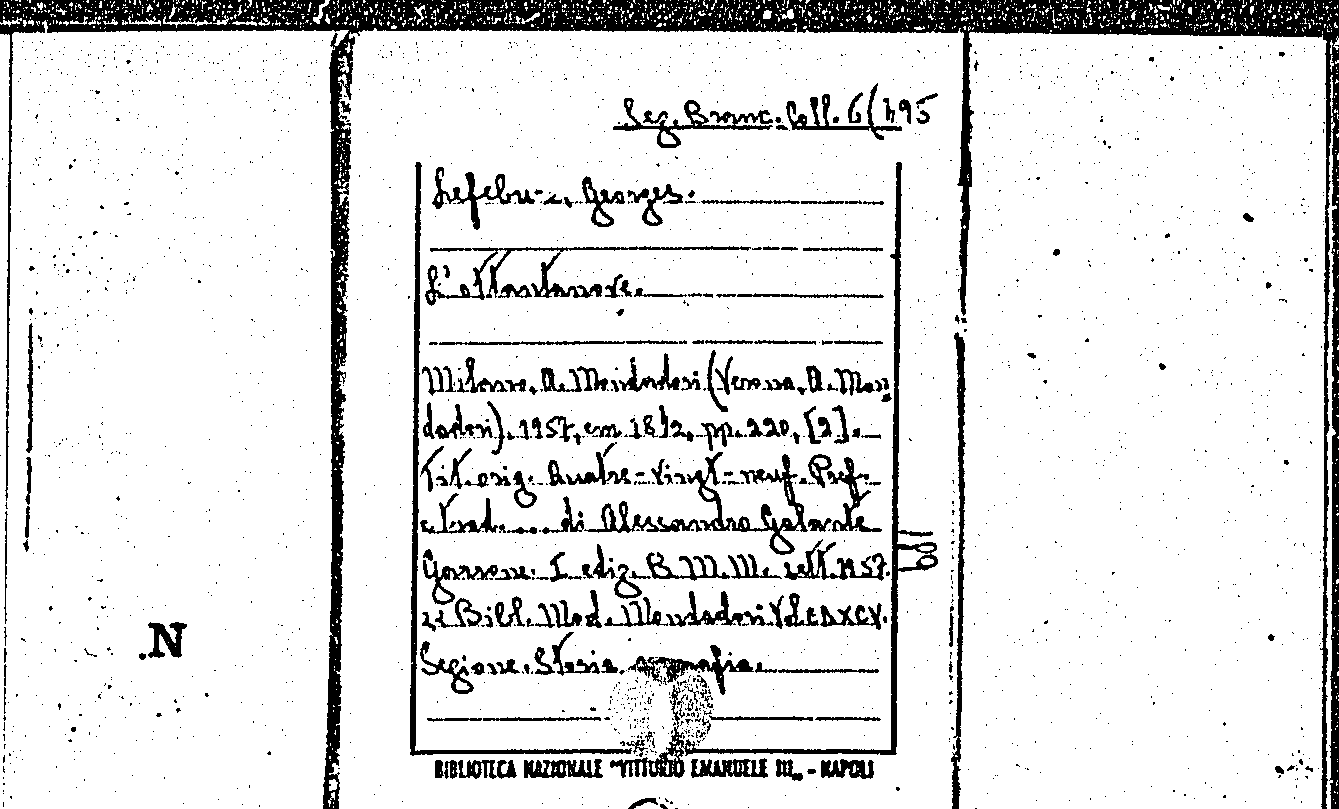 Sez. Branc. Coll. 6(h95
Lefebvre, Georges.
L'ottantanove.
Milano, A. Mondadori (Verona, A. Mon=
dadori), 1957, cm 18½, pp. 220, [2].
Tit. orig. Quatre-vingt-neuf. Pref.
e trad. ... di Alessandro Galante
Garrone. I ediz. B. M. M. sett. 1957.
Bibl. Mod. Mondadori
Sezione. Storia
BIBLIOTECA NAZIONALE "VITTORIO EMANUELE III„ - NAPOLI
.N